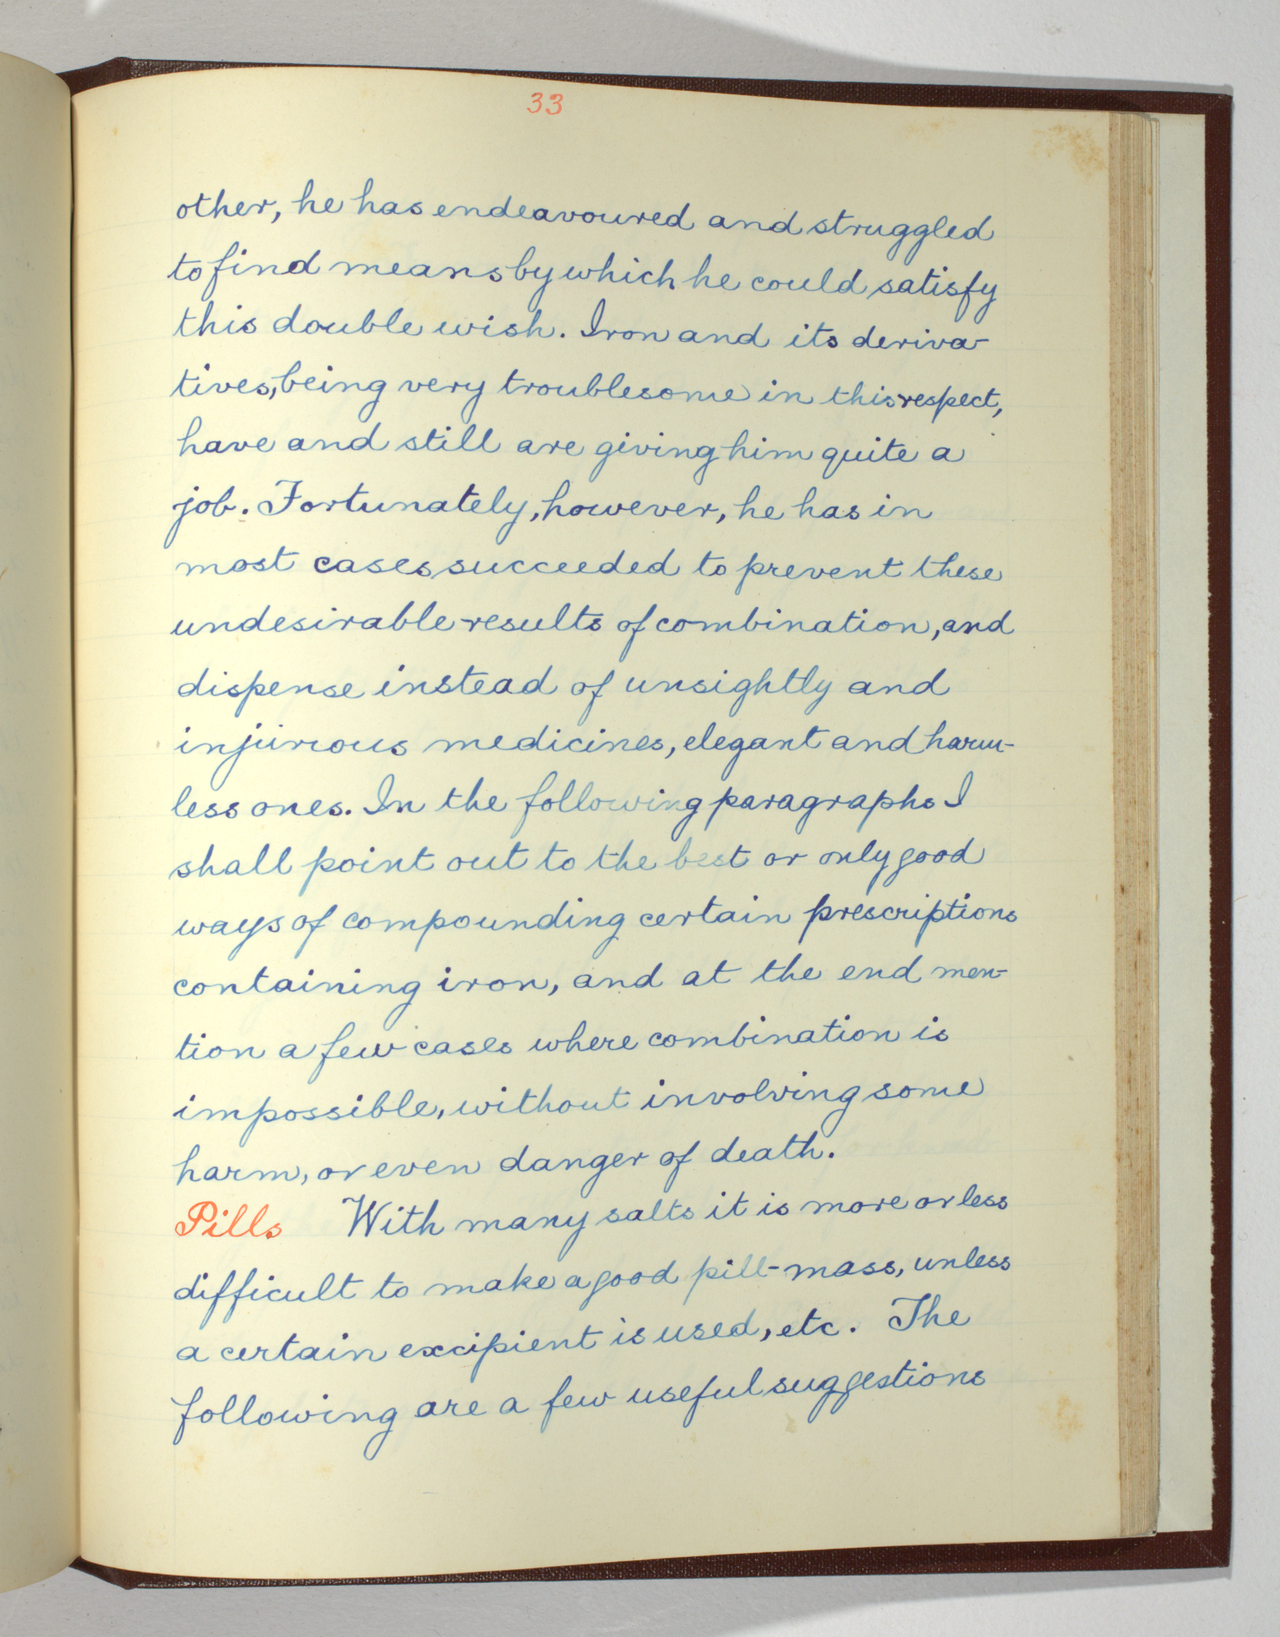 33
other, he has endeavoured and struggled
to find means by which he could satisfy
this double wish. Iron and its deriva-
tives, being very troublesome in this respect,
have and still are giving him quite a
job. Fortunately, however, he has in
most cases, succeeded to prevent these
undesirable results of combination, and
dispense instead of unsightly and
injurious medicines, elegant and harm-
less ones. In the following paragraphs I
shall point out to the best or only good
ways of compounding certain prescriptions
containing iron, and at the end men-
tion a few cases where combination is
impossible, without involving some
harm, or even danger of death.
Pills With many salts it is more or less
difficult to make a good pill-mass, unless
a certain excipient is used, etc. The
following are a few useful suggestions